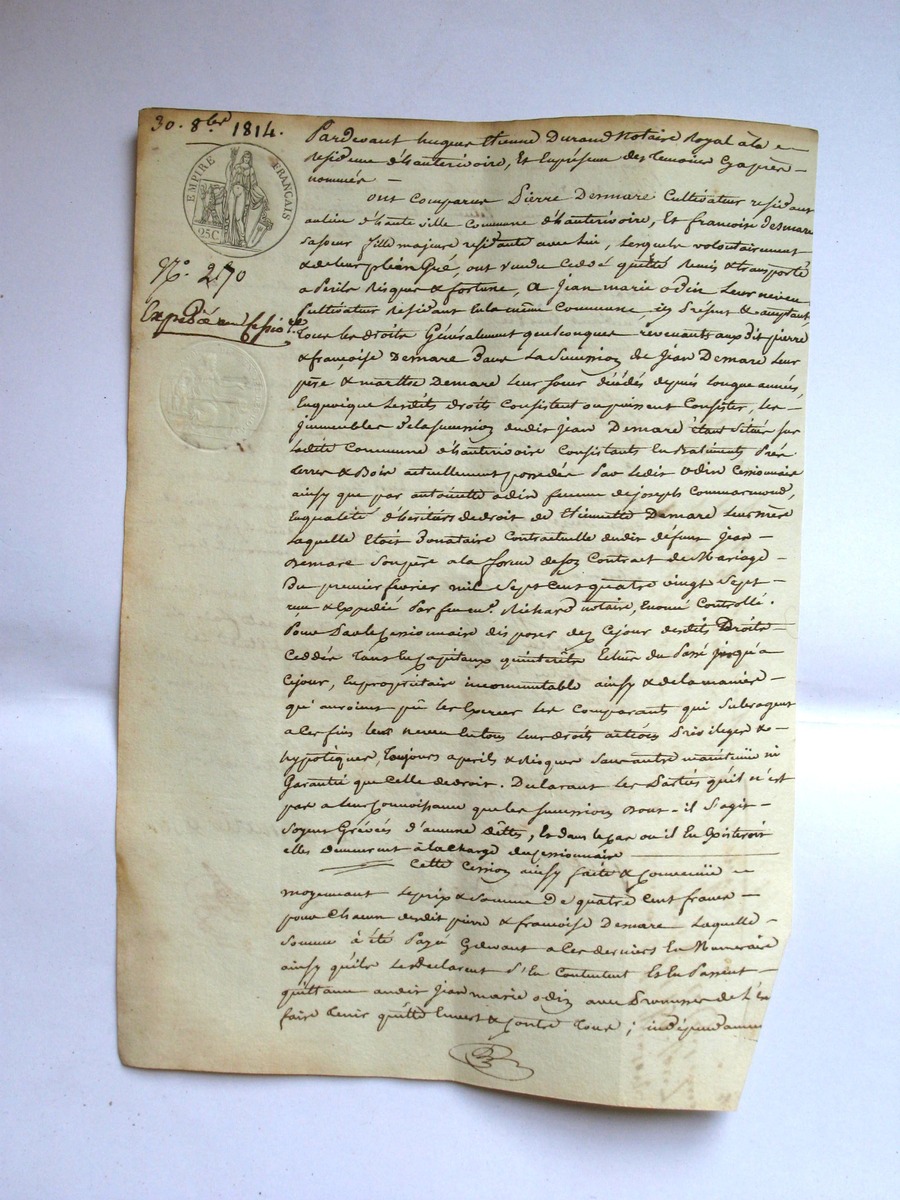 30. 8bre 1814.
EMPIRE FRANÇAIS
25C
No. 270
Expédié au cessionre
Pardevant hugues Etienne Durand Notaire Royal à la
Residence d'hauterivoire, Et En présence des temoins Cy après
nommés
ont comparus Pierre Demare Cultivateur residant
au lieu d'haute ville Commune d'hauterivoire, Et francoise desmare
sa soeur fille majeure residante avec lui, lesquels volontairement
& de leur plein Gré, ont vendu Ceddé quitté Remis & transporté
a Perils Risques & fortune, a Jean marie odin Leur neveu
Cultivateur Residant En la même Commune icy Présent & acceptant,
tous les droits Généralement quelconques revenants aux dits pierre
& françoise Demare Dans La Succession de Jean Demare leur
père & marthe Demare leur soeur décédés depuis longue années,
En quoique Lesdits droits Consistent ou puissent Consister, les
immeubles de la succession dudit Jean Demare etant situés sur
Ladite Commune d'hauterivoire Consistants En Batiments Prés
terres & Bois actuellement possedés Par ledit odin Cessionnaire
ainsy que par antoinette odin femme de joseph Commarmond,
En qualité d'héritiers de droit de Etiennette Demare leur mère
Laquelle Etoit Donataire Contractuelle dudit défunt Jean
Demare son père a la forme de son Contract de Mariage
Du premier fevrier mil Sept Cent quatre vingt Sept
reçu & Expedié Par feu me. Richard notaire, Enoncé Controllé.
Pour Par le Cessionnaire disposer dez Cejour desdits Droits
Ceddés tant En Capitaux qu'interêts Echus du Passé jusqu'a
Cejour, En propriétaire incommutable ainsy & de la manière
qu'auroient pû les Exercer les Comparants qui Subrogent
a les fins leur neveu En tous leurs droits actions Privileges &
hypotèques, toujours a perils & Risques Sans autre maintenüe ni
Garantie que Celle de droit. Declarant les Parties qu'il n'est
pas a leur Connoissance que les successions Dont il S'agit
Soyent Grévées d'aucune dêtte, Et dans le cas ou il En Existeroit
elles demeurent à la charge du Cessionnaire
Cette Cession ainsy faite & Convenüe
moyennant Le prix & Somme De quatre Cent francs
pour Chacun desdit pierre & francoise Demare Laquelle
Somme à été Payé Cy devant a Ces derniers En Numeraire
ainsy qu'ils Le declarent S'En Contentent Et En Passent
quittance audit Jean marie odin avec Promesse de L'En
faire tenir quitte Envers & Contre tous; independament